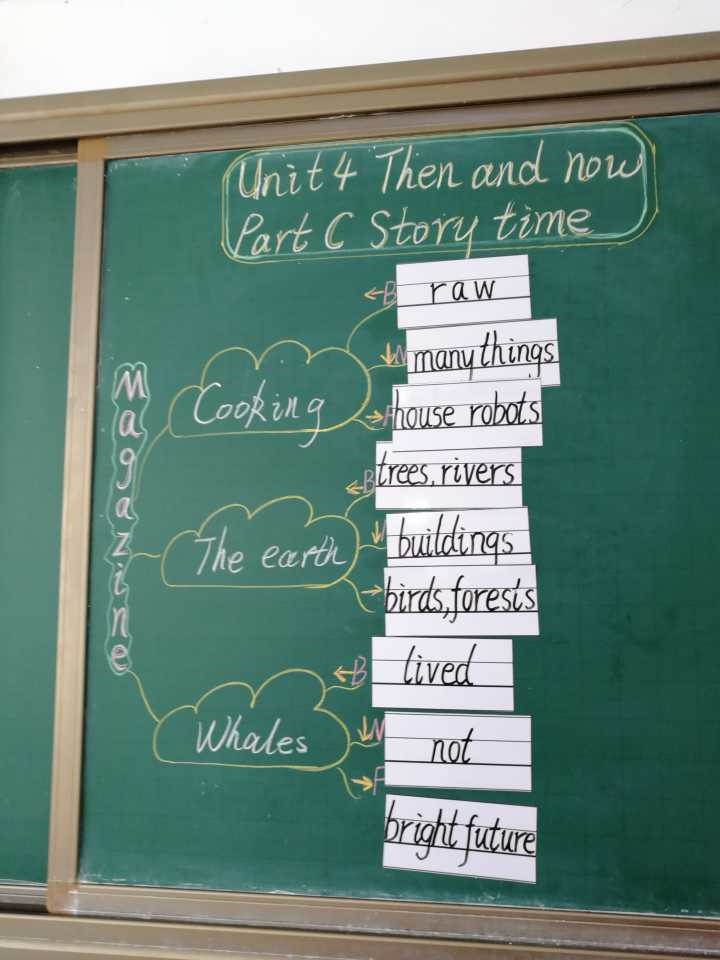 Unit 4 Then and now
Part C Story time
Magazine
Cooking
←B raw
↓N many things
→F house robots
The earth
←B trees, rivers
↓ buildings
→ birds, forests
Whales
←B lived
↓N not
→F bright future